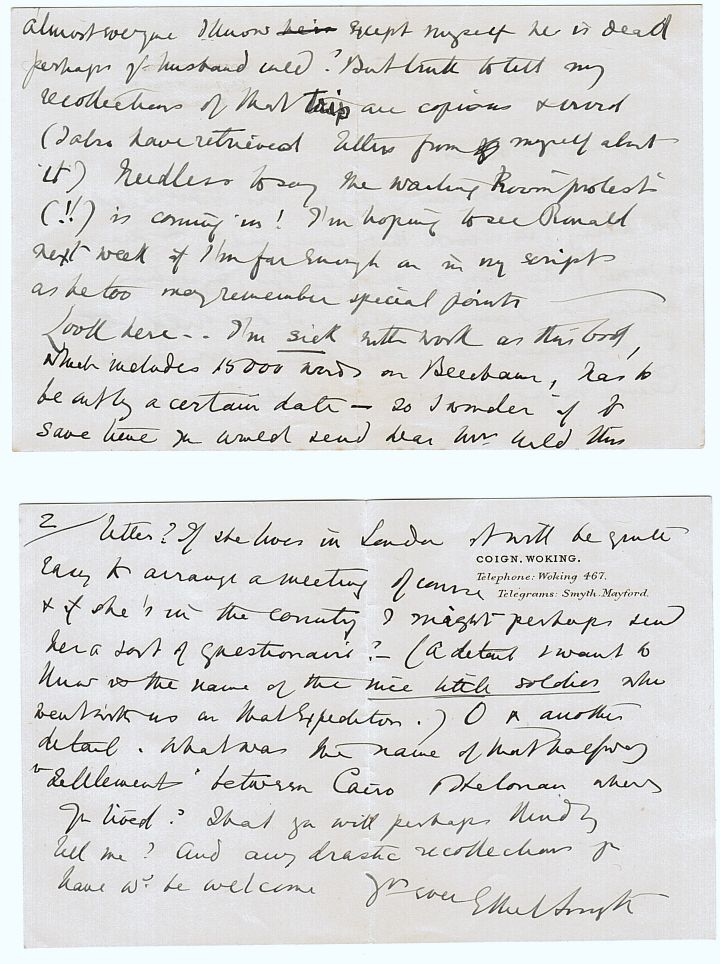 almost everyone I know ~~here~~ except myself he is dead
perhaps yr husband wld? But truth to tell my
recollections of that trip are copious & vivid
(I also have retrieved letters from myself about
it) Needless to say the waiting Room protest
(!!) is coming in! I'm hoping to see Ronald
next week if I'm far enough on in my script
as he too may remember special points
Look here - - I'm sick with work as this book,
which includes 15000 words on Beecham, has to
be out by a certain date — so I wonder if to
save time you would send dear Mrs this
2/ letter? If she lives in London it will be quite
COIGN, WOKING.
Telephone: Woking 467.
Telegrams: Smyth. Mayford.
easy to arrange a meeting of course
& if she's in the country I might perhaps send
her a sort of questionaire? – (A detail I want to
know is the name of the nice little soldier who
went with us on that Expedition.) O & another
detail. What was the name of that halfway
"Settlement" between Cairo & Helouan where
you lived? That you will perhaps kindly
tell me? And any drastic recollections you
have wd. be welcome Yrs ever Ethel Smyth